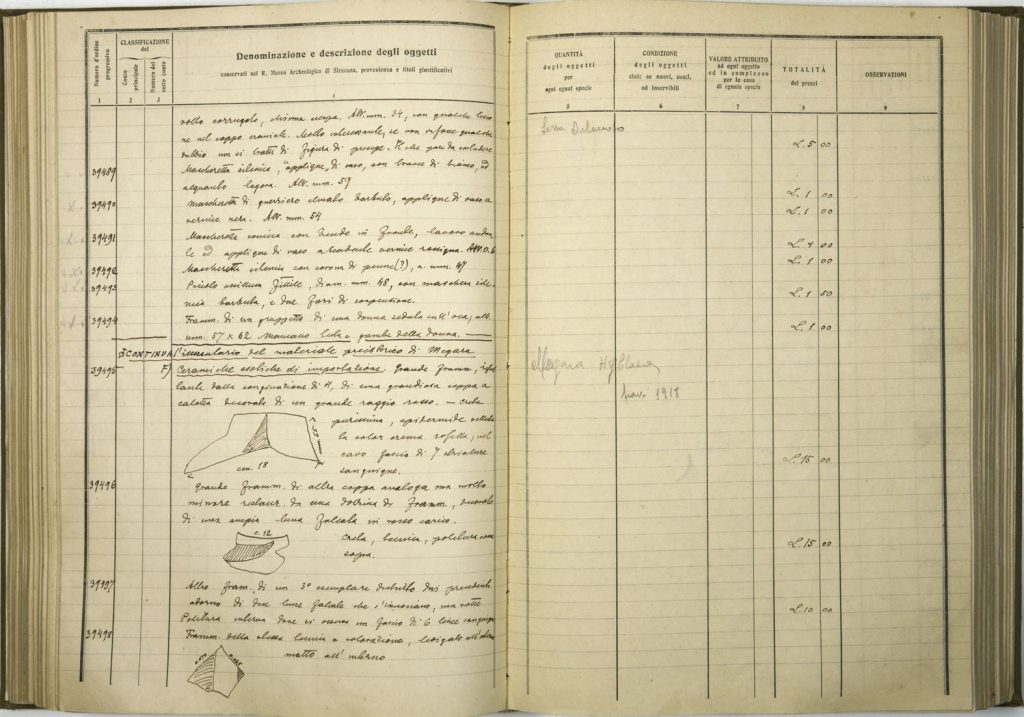 Numero d'ordine progressivo
CLASSIFICAZIONE del
Conto principale
Numero del sotto conto
Denominazione e descrizione degli oggetti
conservati nel R. Museo Archeologico di Siracusa, provenienza e titoli giustificativi
1 2 3 4
volto corrugato, chioma Alt. mm. 34, con qualche
ne nel cappo craniale. Molto interessante, se non vi fosse qualche
dubbio non si tratti di figura di presepe.
39489 Mascheretta silenica, "applique" di vaso, con tracce di bianco, ed
alquanto logora. Alt. mm. 59
39490 Mascheretta di guerriero elmato barbuto, applique di vaso a
vernice nera. Alt. mm. 54
39491 Mascheretta comica con in fronte, lavoro
le ed applique di vaso a vernice rossigna. Alt. 0.6
39492 Mascheretta silenica con corona di (?), a. mm. 47
39493 Piccolo oscillum fittile, diam. mm. 48, con maschera sile-
nica barbuta, e due fori di sospensione.
39494 Framm. di un gruppetto di una donna seduta sull'oca; alt.
mm. 57 x 62 Mancano testa e gambe della donna.
CONTINUA l'inventario del materiale preistorico di Megara
39495 F) Ceramiche esotiche di importazione. Grande framm., risul-
tante dalla congiunzione di 4, di una grandiosa coppa a
calotta decorata di un grande raggio rosso. — Creta
purissima, epidermide vellutata
color crema rosetta; nel
cavo fascio di 7 striature
sanguigne.
cm. 18
39496 Grande framm. di altra coppa analoga ma molto
minore restaur. da una dozzina di framm., decorata
di una ampia luna falcata in rosso carico.
0.12
Creta, tecnica, politura come
sopra.
39497 Altro framm. di un 3º esemplare distrutto dai precedenti
adorno di due lune falcate che s'incrociano,
Politura interna dove si osserva un fascio di 6 linee sanguigne
39498 Framm. della stessa tecnica e colorazione, levigato all'esterno
matto all'interno
QUANTITÀ degli oggetti per ogni egual specie
CONDIZIONE degli oggetti cioè: se nuovi, usati, od inservibili
VALORE ATTRIBUITO ad ogni oggetto od in complesso per le cose di eguale specie
TOTALITÀ dei prezzi
OSSERVAZIONI
5 6 7 8 9
L. 5 00
L. 1 00
L. 1 00
L. 1 00
L. 1 00
L. 1 50
L. 1 00
Megara Hyblaea
1918
L. 15 00
L. 15 00
L. 10 00